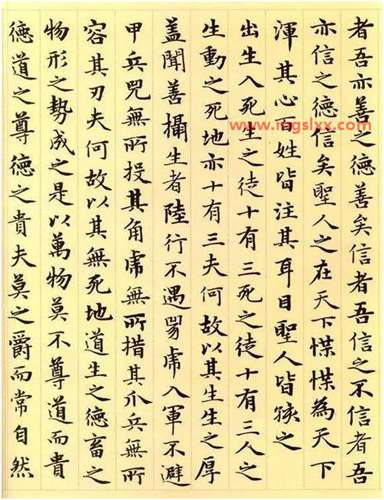 者吾亦善之德善矣信者吾信之不信者吾
亦信之德信矣聖人之在天下惵惵為天下
渾其心百姓皆注其耳目聖人皆孩之
出生入死生之徒十有三死之徒十有三人之
生動之死地亦十有三夫何故以其生生之厚
蓋聞善攝生者陸行不遇兕虎入軍不避
甲兵兕無所投其角虎無所措其爪兵無所
容其刃夫何故以其無死地道生之德畜之
物形之勢成之是以萬物莫不尊道而貴
德道之尊德之貴夫莫之爵而常自然
www.mgslxx.com